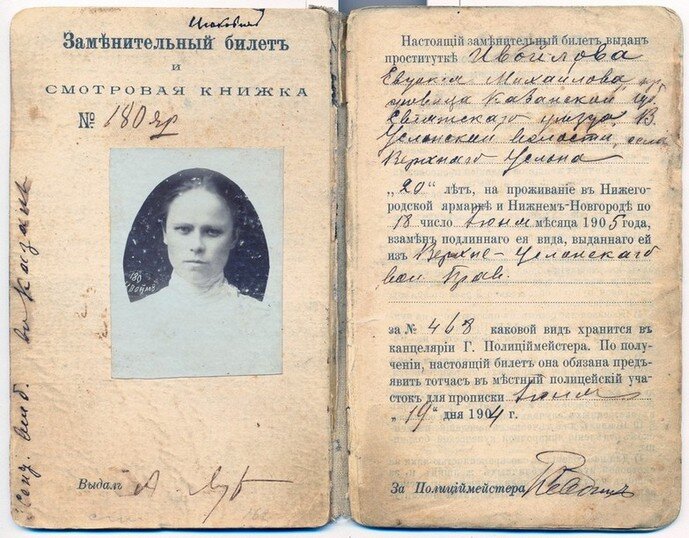 Замѣнительный билетъ
и
СМОТРОВАЯ КНИЖКА
№ 180 яр
180
Выдалъ
Настоящій замѣнительный билетъ выданъ
проституткѣ Ивойлова
Евдокія Михайлова, кр.
Казанской губ.
Свіяжскаго уѣзда, В.
Услонской волости, села
Верхняго Услона
„20“ лѣтъ, на проживаніе въ Нижего-
родской ярмаркѣ и Нижнемъ-Новгородѣ по
18 число Іюня мѣсяца 1905 года,
взамѣнъ подлиннаго ея вида, выданнаго ей
изъ Верхне-Услонскаго
вол. Прав.
за № 468 каковой видъ хранится въ
канцеляріи Г. Полиціймейстера. По полу-
ченіи, настоящій билетъ она обязана предъ-
явить тотчасъ въ мѣстный полицейскій уча-
стокъ для прописки Іюня
„19“ дня 1904 г.
За Полиціймейстера